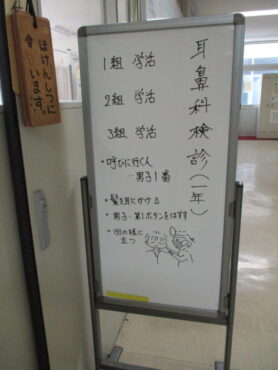 耳鼻科検診(一年)
1組 学活
2組 学活
3組 学活
・呼びに行く人
→男子1番
・髪を耳にかける
・男子→第1ボタンをはずす
・図の様に
立つ
ほけんしつに
います。